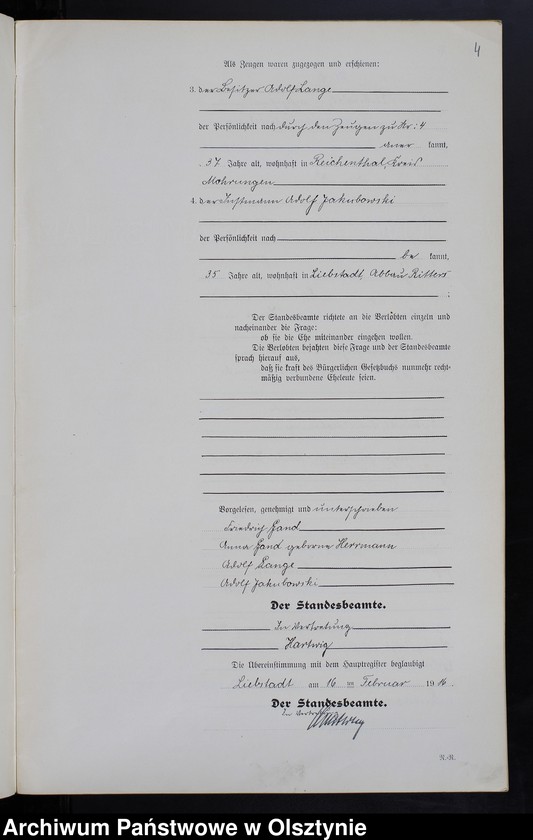 4
Als Zeugen waren zugezogen und erschienen:
3. der Besitzer Adolf Lange
der Persönlichkeit nach durch den Zeugen zu Nr: 4
aner kannt,
37 Jahre alt, wohnhaft in Reichenthal, Kreis
Mohrungen
4. der Instmann Adolf Jakubowski
der Persönlichkeit nach
be kannt,
35 Jahre alt, wohnhaft in Liebstadt, Abbau Ritters
;
Der Standesbeamte richtete an die Verlobten einzeln und
nacheinander die Frage:
ob sie die Ehe miteinander eingehen wollen.
Die Verlobten bejahten diese Frage und der Standesbeamte
sprach hierauf aus,
daß sie kraft des Bürgerlichen Gesetzbuchs nunmehr recht-
mäßig verbundene Eheleute seien.
Vorgelesen, genehmigt und unterschrieben
Friedrich Hand
Anna Hand geborne Herrmann
Adolf Lange
Adolf Jakubowski
Der Standesbeamte.
In Vertretung
Hartwig
Die Übereinstimmung mit dem Hauptregister beglaubigt
Liebstadt am 16 ten Februar 1916.
Der Standesbeamte.
In Vertr.
Hartwig
N.-R.
Archiwum Państwowe w Olsztynie